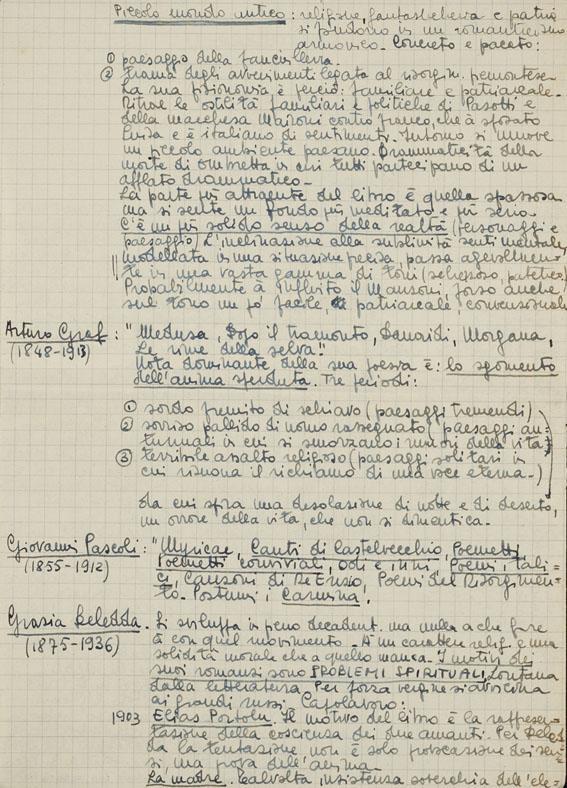 Piccolo mondo antico: religione, fantasticheria e patria
si fondono in un romanticismo
armonico. Concreto e pacato:
① paesaggio della fanciullezza.
② trama degli avvenimenti legata al risorgim. piemontese
La sua fisionomia è perciò: familiare e patriarcale.
Ritrae le ostilità familiari e politiche di Pasotti e
della marchesa Maironi contro Franco, che à sposato
Luisa e è italiano di sentimenti. Intorno si muove
un piccolo ambiente paesano. Drammaticità della
morte di Ombretta in cui tutti partecipano di un
afflato drammatico.
La parte più attraente del libro è quella spassosa
ma si sente un fondo più meditato e più serio.
C'è un più solido senso della realtà (personaggi e
paesaggio) L'inclinazione alla sublimità sentimentale,
modellata in una situazione precisa, passa agevolmen=
te in una vasta gamma di toni (scherzoso, patetico)
Probabilmente à influito il Manzoni, forse anche
sul tono un po' facile, patriarcale, convenzionale
Arturo Graf: "Medusa, Dopo il tramonto, Danaidi, Morgana,
(1848-1913) Le rime della selva."
Nota dominante della sua poesia è: lo sgomento
dell'anima sperduta. Tre periodi:
① sordo fremito di schiavo (paesaggi tremendi)
② sorriso pallido di uomo rassegnato (paesaggi au=
tunnali in cui si smorzano i rumori della vita)
③ terribile assalto religioso (paesaggi solitari in
cui risuona il richiamo di una voce eterna.)
da cui spira una desolazione di notte e di deserto,
un orrore della vita, che non si dimentica.
Giovanni Pascoli: "Myricae, Canti di Castelvecchio, Poemetti
(1855-1912) Poemetti conviviali, odi e inni, Poemi itali=
ci, Canzoni di Re Enzio, Poemi del Risorgimen=
to. Postumi: Carmina.
Grazia Deledda. Si sviluppa in pieno decadent. ma nulla a che fare
(1875-1936) à con quel movimento. À un carattere relig. e una
solidità morale che a quello manca. I motivi dei
suoi romanzi sono PROBLEMI SPIRITUALI, lontana
dalla letteratura. Per forza vergine si avvicina
ai grandi russi. Capolavoro:
1903 Elias Portolu. Il motivo del libro è la rappresen=
tazione della coscienza dei due amanti. Per Deled
da la tentazione non è solo provocazione dei sen=
si, ma prova dell'anima.
La madre. Talvolta, insistenza soverchia dell'ele=